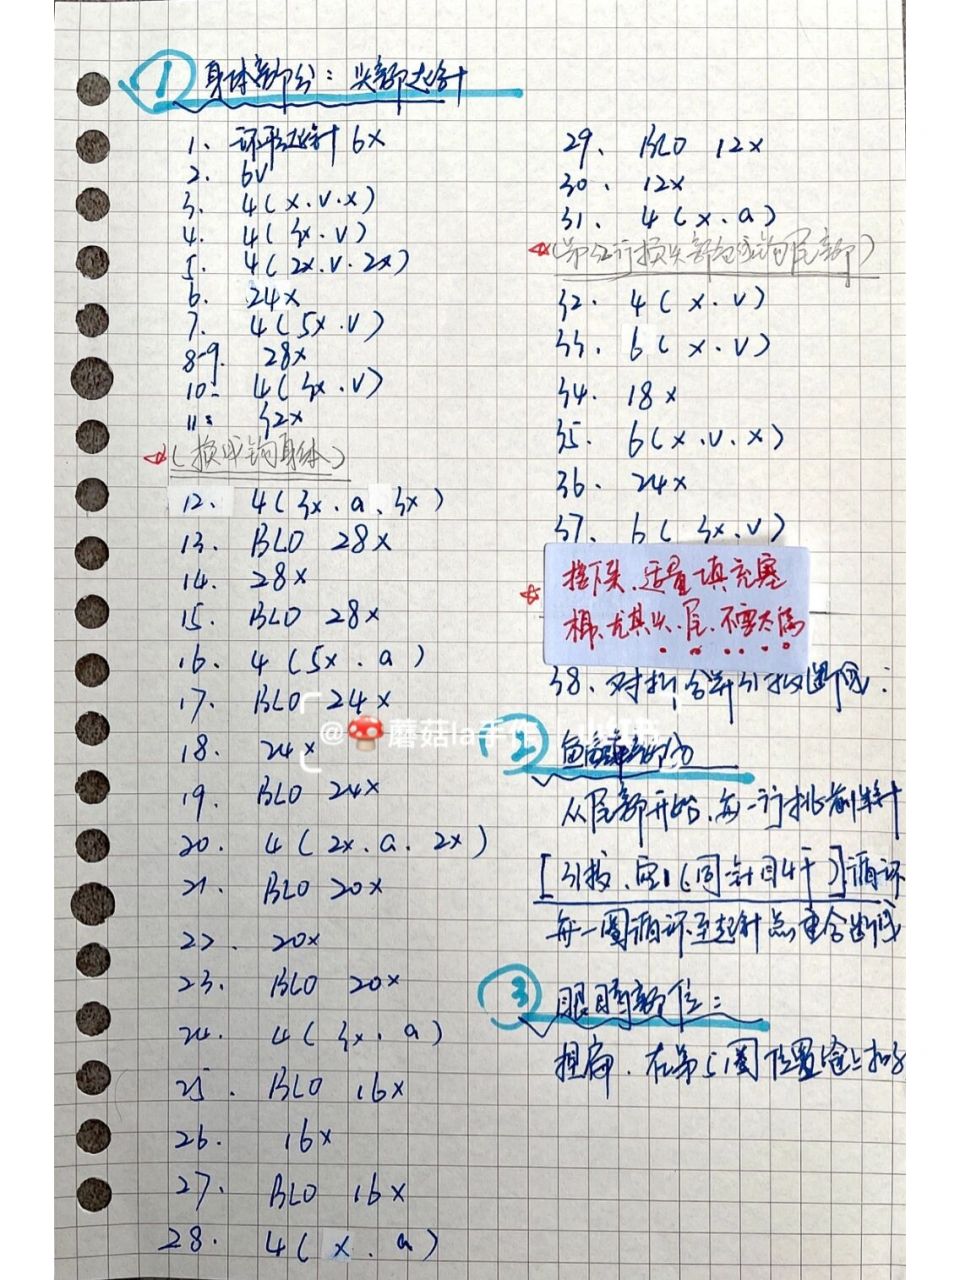 ① 身体部分：头部起针
1、 环形起针 6x
2. 6v
3. 4(x.v.x)
4. 4(3x.v)
5. 4(2x.v.2x)
6. 24x
7. 4(5x.v)
8-9. 28x
10: 4(3x.v)
11: 32x
(换线钩身体)
12. 4(3x.a.3x)
13. BLO 28x
14. 28x
15. BLO 28x
16. 4(5x.a)
17. BLO 24x
18. 24x
19. BLO 24x
20. 4(2x.a.2x)
21. BLO 20x
22. 20x
23. BLO 20x
24. 4(3x.a)
25. BLO 16x
26. 16x
27. BLO 16x
28. 4(x.a)
29、 BLO 12x
30、 12x
31、 4(x.a)
(第32行换头部色线钩尾部)
32. 4(x.v)
33. 6(x.v)
34. 18x
35. 6(x.v.x)
36. 24x
37. 6(3x.v)
按下头、适量填充塞
棉、尤其头、尾、不要太满
38、对折，合并引拔断线：
② 鱼鳞部分
从尾部开始、每一行挑前半针
[引拔、空1(同一针目4千)]循环
每一圈循环至起针点重合断线
③ 眼睛部位：
捏扁、在第5圈位置缝上扣
@🍄蘑菇la手
小红书